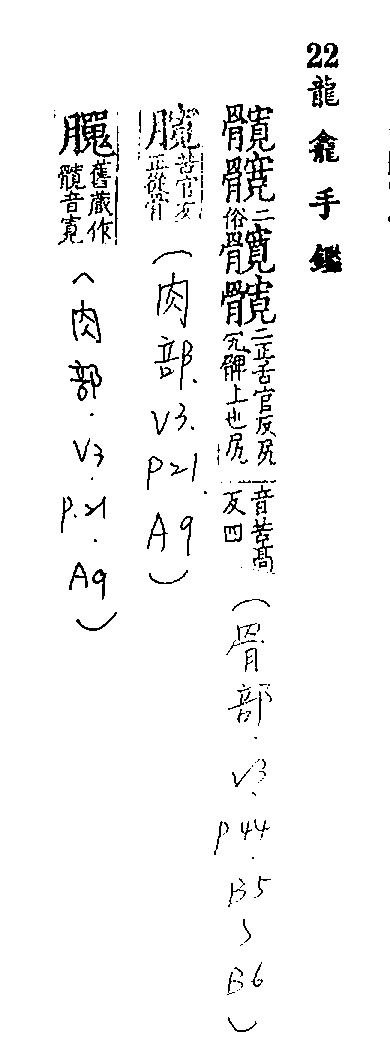 22 龍龕手鑑
髖二俗髖髖二正苦官反尻也髀上也尻音苦高反四(骨部.V3.P44.B5~B6)
苦官反正從骨(肉部.V3.P21.A9)
舊藏作髖音寬(肉部.V3.P.21.A9)